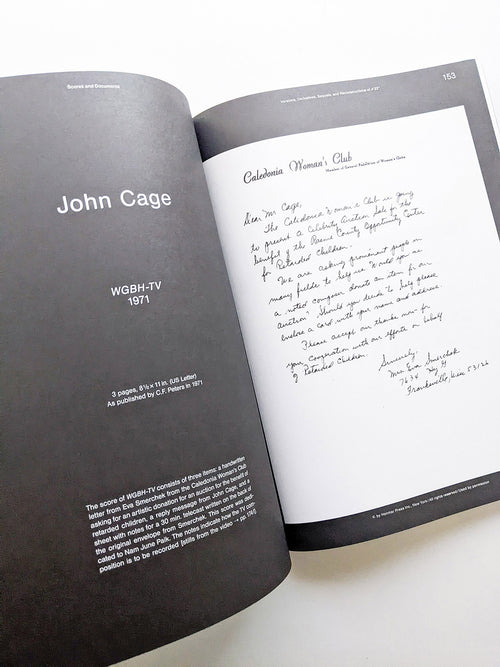 Scores and Documents
John Cage
WGBH-TV
1971
3 pages, 8½ × 11 in. (US Letter)
As published by C.F. Peters in 1971
The score of WGBH-TV consists of three items: a handwritten
letter from Eva Smerchek from the Caledonia Woman's Club
asking for an artistic donation for an auction for the benefit of
retarded children, a reply message from John Cage, and a
sheet with notes for a 30 min. telecast written on the back of
the original envelope from Smerchek. This score was dedi-
cated to Nam June Paik. The notes indicate how the TV com-
position is to be recorded [stills from the video → pp. 141]
Versions, Variations, Sequels, and
153
Caledonia Woman's Club
Member of General Federation of Women's Clubs
Dear Mr. Cage,
The Caledonia Woman's Club is going
to present a Celebrity Auction Sale for the
benefit of the Racine County Opportunity Center
for Retarded Children.
We are asking prominent people in
many fields to help us. Would you as
a noted composer donate an item for our
auction? Should you decide to help please
enclose a card with your name and address.
Please accept our thanks now for
your cooperation with our efforts on behalf
of Retarded Children.
Sincerely,
Mrs. Eva Smerchek
7634 Hy H
Franksville, Wisc 53126
© by Henmar Press Inc., New York / All rights reserved / Used by permission